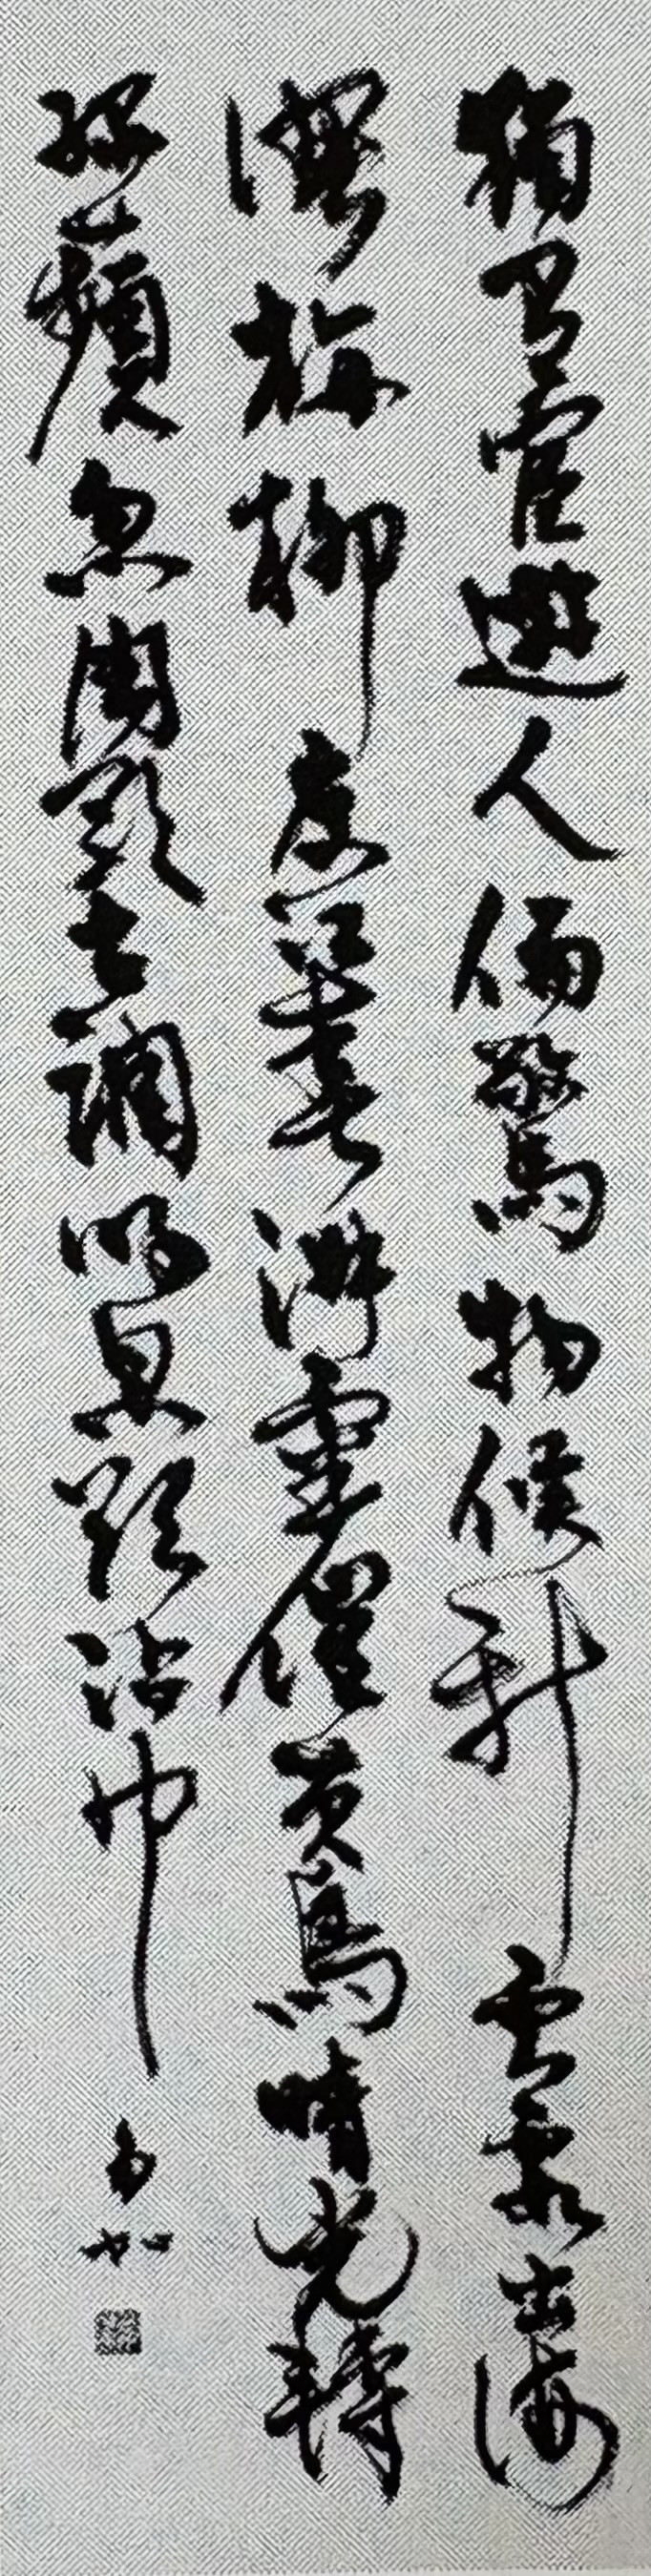 獨有宦遊人偏驚物候新雲霞出海
曙梅柳度江春淑氣催黃鳥晴光轉
綠蘋忽聞歌古調歸思欲沾巾